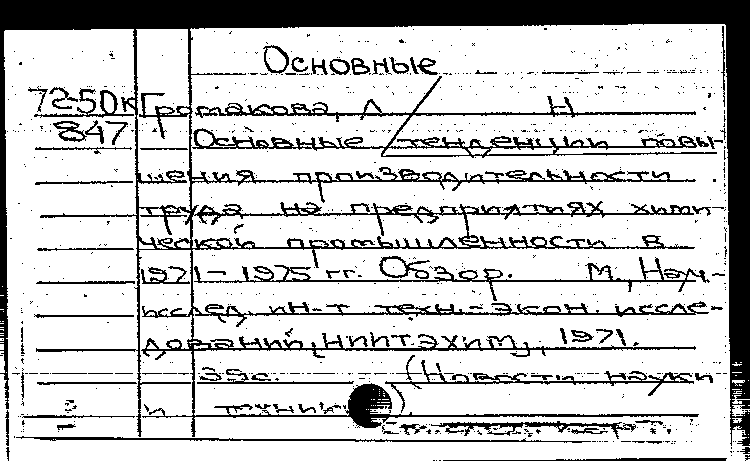 Основные
72-50к Громакова, Л Н
847 Основные тенденции повы-
шения производительности
труда на предприятиях хими
ческой промышленности в
1971-1975 гг. Обзор. М., Науч.-
исслед. ин-т техн.-экон. иссле-
дований "НИИТЭХИМ", 1971.
39с. (Новости науки
и техники).